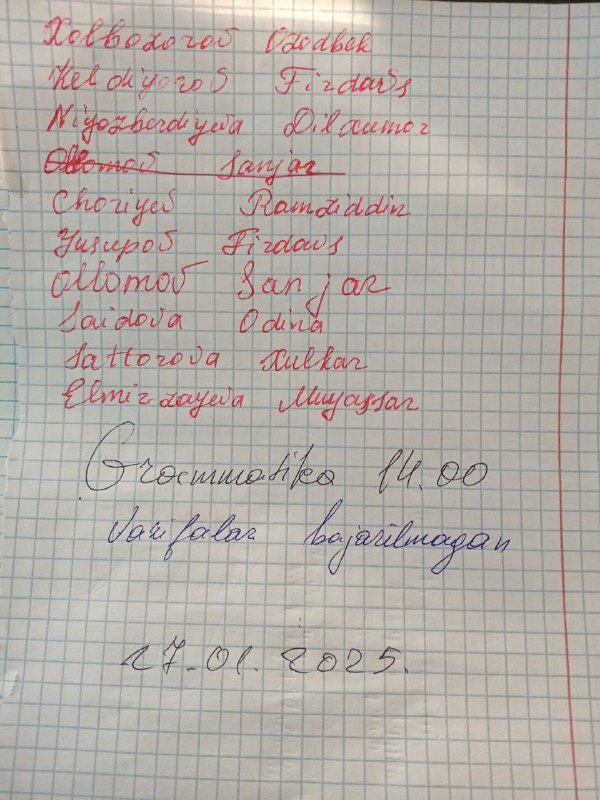 Xolbozorov Ozodbek
Keldiyorov Firdavs
Niyozberdiyeva Dilxumor
Ollomov Sanjar
Choriyev Ramziddin
Yusupov Firdavs
Ollomov Sanjar
Saidova Odina
Sattorova Xulkar
Elmirzayeva Muyassar
Grammatika 14.00
Vazifalar bajarilmagan
27.01.2025.